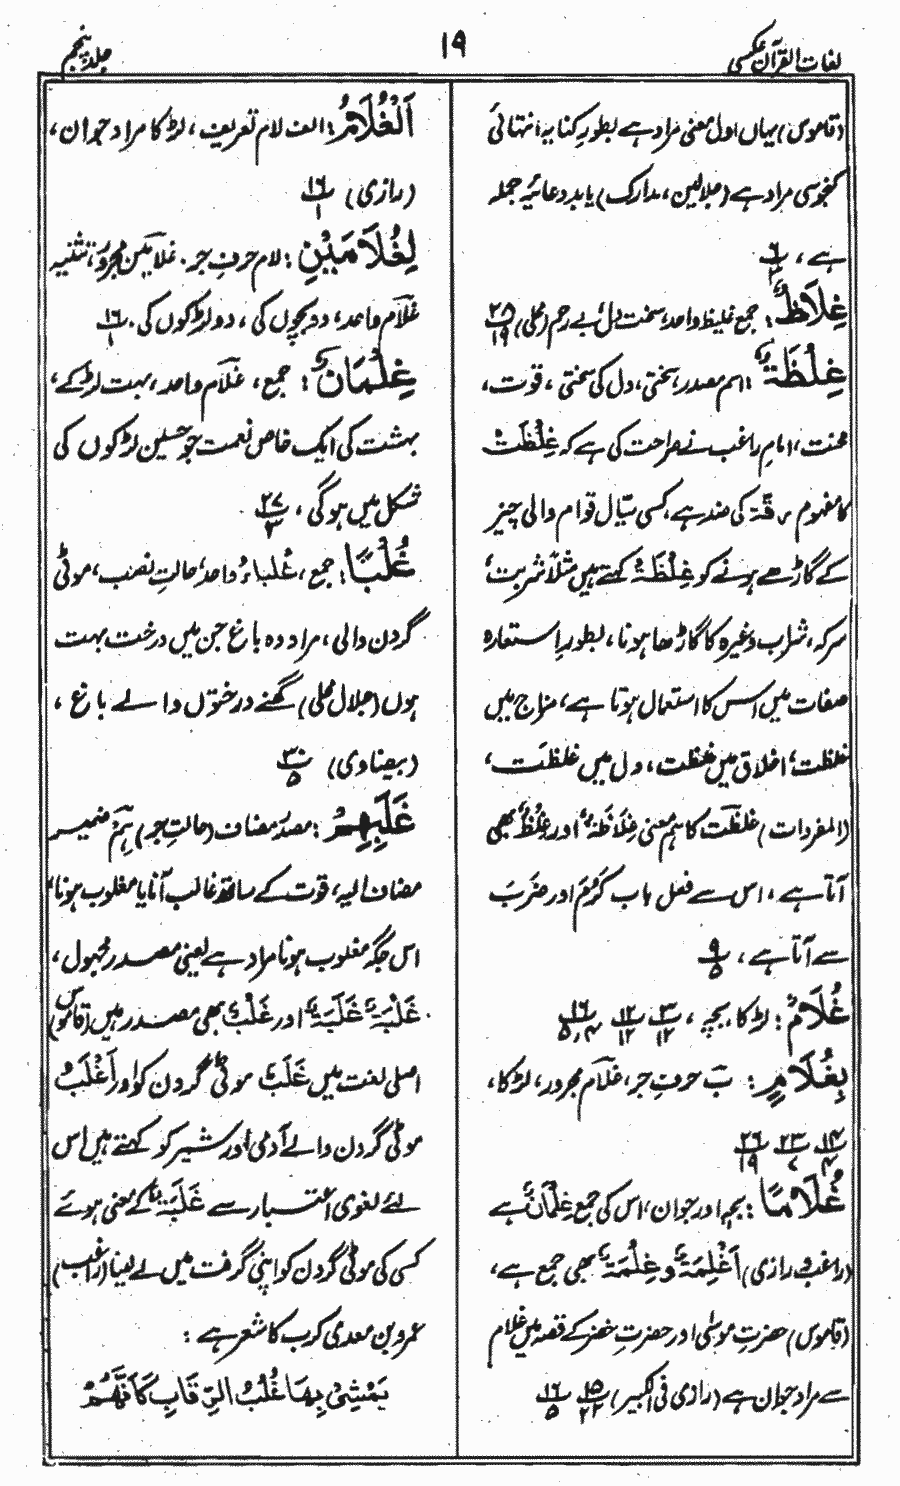 لغات القرآن عکسی
۱۹
جلد پنجم
(قاموس) یہاں اول معنی مراد ہے بطورِ کنایہ، انتہائی
کنجوسی مراد ہے (جلالین، مدارک) یا بد دعائیہ جملہ
ہے، ۶/۳
غِلَاظٌ: جمع غلیظ واحد، سخت دل، بے رحم (محلی) ۲۵/۱۹
غِلْظَةً: اسم مصدر، سختی، دل کی سختی، قوت،
محنت، امام راغب نے صراحت کی ہے کہ غِلْظَتْ
کا مفہوم رقّۃ کی ضد ہے، کسی سیّال قوام والی چیز
کے گاڑھے ہونے کو غِلْظَۃٌ کہتے ہیں مثلاً شربت،
سرکہ، شراب وغیرہ کا گاڑھا ہونا، بطورِ استعارہ
صفات میں اس کا استعمال ہوتا ہے، مزاج میں
غلظت، اخلاق میں غلظت، دل میں غلظت،
(المفردات) غلظت کا ہم معنی غِلَاظَۃٌ اور غِلَظٌ بھی
آتا ہے، اس سے فعل باب کَرُمَ اور ضَرَبَ
سے آتا ہے، ۹/۵
غُلَامٌ: لڑکا، بچہ، ۳/۱۲ ۱۲/۱۲ ۱۶/۵،۴
بِغُلَامٍ: بَ حرفِ جر، غلام مجرور، لڑکا،
۱۴/۴ ۲۳/۷ ۲۶/۱۹
غُلَامًا: بچہ اور جوان، اس کی جمع غِلْمَانٌ ہے
(راغب و رازی) اَغْلِمَۃٌ و غِلْمَۃٌ بھی جمع ہے،
(قاموس) حضرتِ موسٰی اور حضرتِ خضر کے قصہ میں غلام
سے مراد جوان ہے (رازی فی الکبیر) ۱۵/۲۲ ۱۶/۵
اَلْغُلَامُ: الف لام تعریف، لڑکا مراد جوان،
(رازی) ۱۶/۱
لِغُلَامَیْنِ: لام حرفِ جر۔ غلامین مجرور، تثنیہ
غلام واحد، دو بچوں کی، دو لڑکوں کی۔ ۱۶/۱
غِلْمَانٌ: جمع، غلام واحد، بہت لڑکے،
بہشت کی ایک خاص نعمت جو حسین لڑکوں کی
شکل میں ہو گی، ۲۷/۳
غُلْبًا: جمع، غَلْبَاءُ واحد، حالتِ نصب، موٹی
گردن والی، مراد وہ باغ جن میں درخت بہت
ہوں (جلال محلی) گھنے درختوں والے باغ،
(بیضاوی) ۳۰/۵
غَلَبِهِمْ: مصدر مضاف (حالتِ جر) ہِمْ ضمیر
مضاف الیہ، قوت کے ساتھ غالب آنا یا مغلوب ہونا،
اس جگہ مغلوب ہونا مراد ہے یعنی مصدر مجہول،
غَلَبَۃٌ، غَلَبَۃٌ اور غَلْبٌ بھی مصدر ہیں (قاموس)
اصلی لغت میں غَلَبَ موٹی گردن کو اور اَغْلَبُ
موٹی گردن والے آدمی اور شیر کو کہتے ہیں اس
لئے لغوی اعتبار سے غَلَبَتْہٗ کے معنی ہوئے
کسی کی موٹی گردن کو اپنی گرفت میں لے لینا (راغب)
عمرو بن معدی کرب کا شعر ہے:
یَمْشِیْ بِهَا غُلْبُ الرِّقَابِ کَاَنَّهُمْ